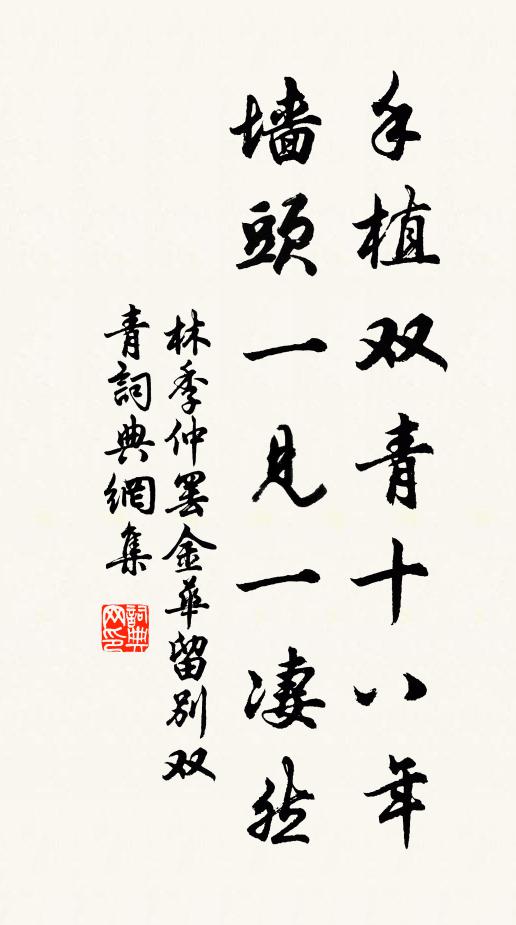 手植双青十八年
墙頭一見一凄然
林季仲罢金華留别双
青詞典網集
詞典网印